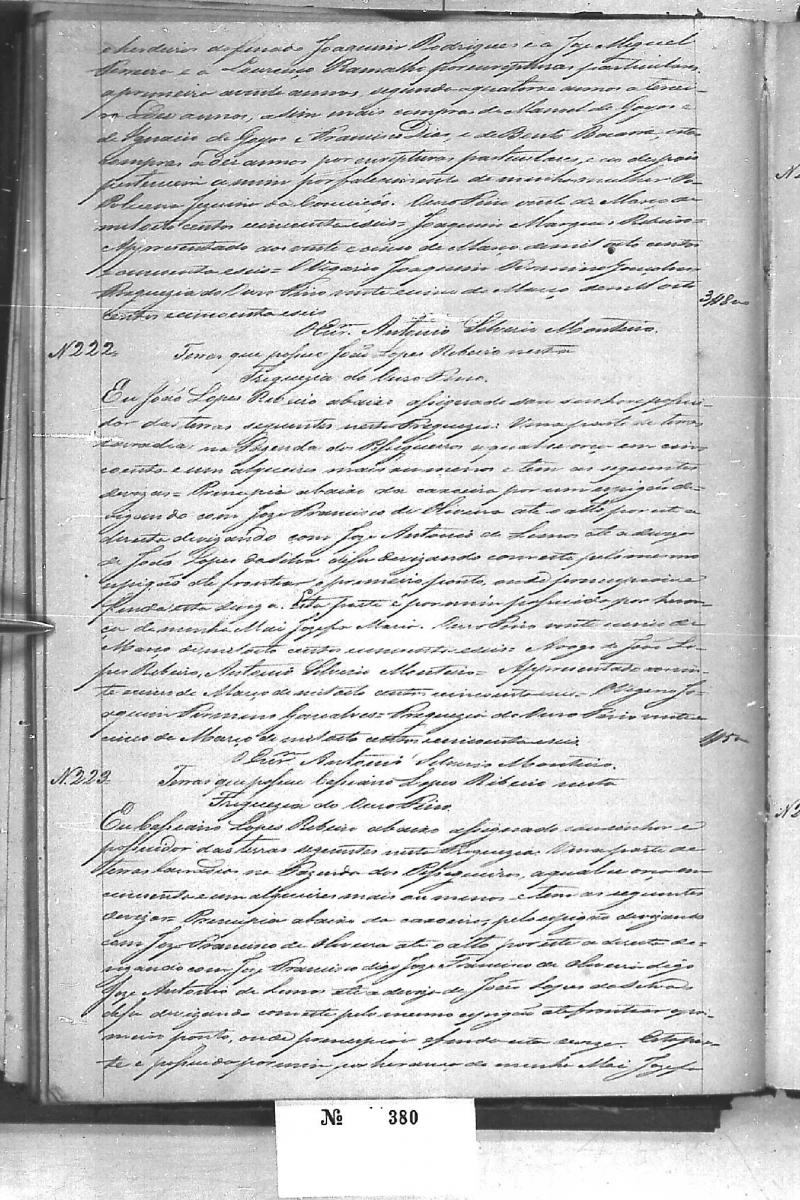 e herdeiros do finado Joaquim Rodrigues e a Joze Miguel
Romero e a Lourenço Ramalho por escripturas particulares
a primeira a vinte annos, segunda a quatorze annos a tercei-
ra a Dez annos, alem mais compras de Manoel de Goyos e
de Ignacio de Goyos e Francisco Dias, e de Bento esta
compras a dez annos por escripturas particulares, e ao despois
pertencem a mim por falecimento de minha mulher
Policena da Conceicão. Ouro Fino vinte de Março de
mil oito centos cincoenta e seis = Joaquim Marques Ribeiro =
Appresentado aos vinte e cinco de Março de mil oito centos
cincoenta e seis = O Vigario Joaquim Firmino Gonçalves
Freguezia do Ouro Fino vinte e cinco de Março de mil oito
centos e cincoenta e seis
O Escr. Antonio Silverio Monteiro.
N 222.
Terras que possue João Lopes Ribeiro nesta
Freguezia do Ouro Fino.
Eu João Lopes Ribeiro abaixo assignado sou senhor e possui-
dor das terras seguintes nesta Freguezia: Uma parte de terras
lavradias na Fazenda dos Pessigueiros a qual se orça em cin-
coenta e um alqueires mais ou menos e tem as seguintes
devizas = Principia abaixo da caxoeira por um espigão de-
vizando com Joze Francisco de Oliveira até o alto por este a
direita devizando com Joze Antonio de Lemos até a deviza
de João Lopes da Silva desse devizando com este pelo mesmo
espigão até frontear o primeiro ponto, onde principiou e
finda esta deviza. Esta parte é por mim possuida por heran-
ça de minha Mai Jozefa Maria. Ouro Fino vinte e cinco de
Março de mil oito centos cincoenta e seis = A rogo de João Lo-
pes Ribeiro, Antonio Silverio Monteiro = Appresentado aos vin-
te e cinco de Março de mil oito centos cincoenta e seis = O Vigario Jo-
aquim Firmino Gonsalves = Freguezia do Ouro Fino vinte e
cinco de Março de mil oito centos e cincoenta e seis
O Escr. Antonio Silverio Monteiro.
N. 223.
Terras que possue Cassiano Lopes Ribeiro nesta
Freguezia do Ouro Fino.
Eu Cassiano Lopes Ribeiro abaixo assignado sou senhor e
possuidor das terras seguintes nesta Freguezia: Uma parte de
terras lavradias na Fazenda dos Pessigueiros, a qual se orça em
cincoenta e um alqueires mais ou menos e tem as seguintes
devizas = Principia abaixo da caxoeira, pelo espigão devizando
com Joze Francisco de Oliveira até o alto, por este a direita de-
vizando com Joze Francisco digo Joze Francisco de Oliveira digo
Joze Antonio de Lemos até a deviza de João Lopes da Silva
desse devizando com este pelo mesmo espigão até frontear o pri-
meiro ponto, onde principiou e finda esta deviza. Esta par-
te é possuida por mim por herança de minha Mai Jozefa
Nº 380